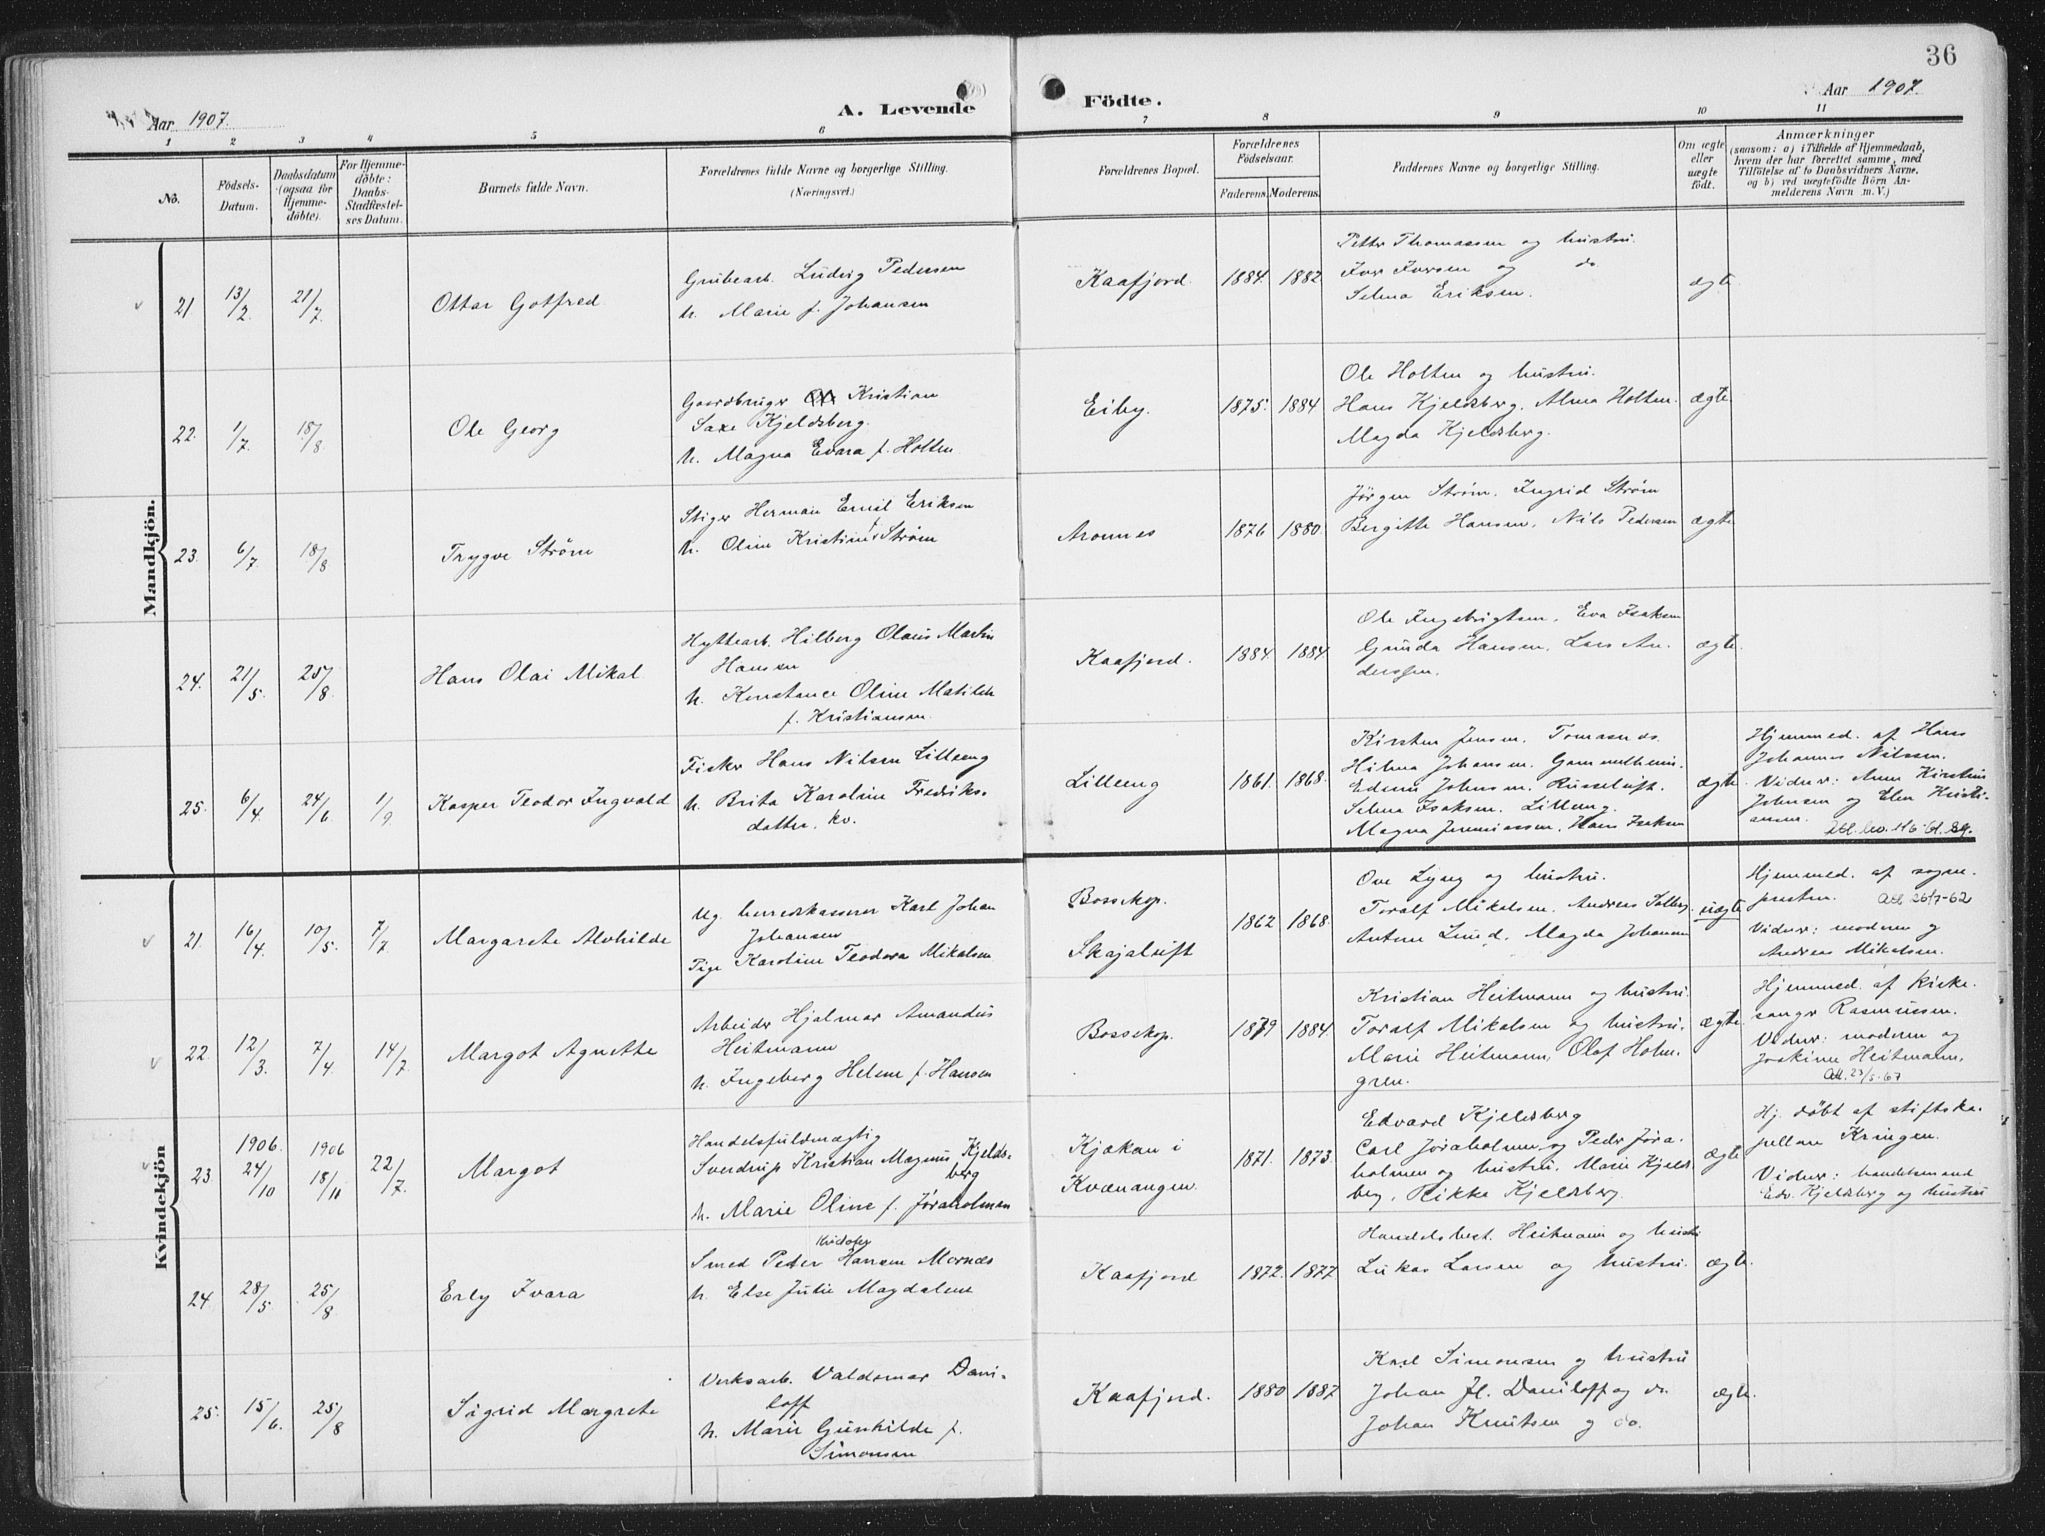 36
Aar 1907.
A. Levende
Födte.
Aar 1907.
1 2 3 4 5 6 7 8 9 10 11
No.
Födsels-
Datum.
Daabsdatum
(ogsaa for
Hjemme-
döbte).
For Hjemme-
döbte:
Daabs-
Stadfæstel-
ses Datum.
Barnets fulde Navn.
Forældrenes fulde Navne og borgerlige Stilling.
(Næringsvei.)
Forældrenes Bopæl.
Forældrenes
Födselsaar.
Faderens. Moderens.
Faddernes Navne og borgerlige Stilling.
Om ægte
eller
uægte
födt.
Anmærkninger
(saasom: a) i Tilfælde af Hjemmedaab,
hvem der har forrettet samme, med
Tilföielse af to Daabsvidners Navne,
og b) ved uægtefödte Börn An-
melderens Navn m. V.)
Mandkjön.
21 13/2 21/7
Ottar Gotfred
Grubearb. Ludvig Pedersen
h. Marie f. Johansen
Kaafjord. 1884. 1882
Petter Thomassen og hustru.
Iver Iversen og do
Selma Eriksen.
ægte
22. 1/7 18/8
Ole Georg
Gaardbruger Kristian
Saxe Kjeldsberg.
h. Magna Evara f. Holten
Eiby. 1875. 1884
Ole Holten og hustru.
Hans Kjeldsberg. Alma Holten.
Magda Kjeldsberg.
ægte
23. 6/7 18/8
Trygve Strøm
Stiger Herman Emil Eriksen
h. Oline Kristine f. Strøm
Aronnes 1876 1880.
Jørgen Strøm. Ingrid Strøm
Bergitte Hansen, Nils Pedersen
ægte
24. 21/5. 25/8.
Hans Olai Mikal
Hyttearb. Hilberg Olaus Martin
Hansen
h. Konstance Oline Matilde
f. Kristiansen.
Kaafjord. 1884. 1884
Ole Ingebrigtsen. Eva Isaksen
Gunda Hansen, Lars An-
derssen.
ægte.
25. 6/4. 24/6 1/9
Kasper Teodor Ingvald
Fisker Hans Nilsen Lilleeng
h. Brita Karoline Fredriks-
datter. kv.
Lilleeng 1861. 1868.
Kirsten Jensen. Tomasnes.
Hilma Johansen. Gammelheim.
Edevin Johnsen. Russeluft.
Selma Isaksen. Lilleeng.
Magna Jeremiassen. Hans Isaksen
ægte.
Hjemmed. af Hans
Johannes Nilssen.
Vidner: Anne Kirstine
Johnsen og Elen Kristi-
ansen.
Kvindekjön
21. 16/4. 10/5. 7/7.
Margarete Alvhilde
Ug. herredskasserer Karl Johan
Johansen
Pige Karoline Teodora Mikalsen
Bossekop.
Skajaluft
1862 1868.
Ove Lyng og hustru.
Toralf Mikalsen. Andreas Solberg.
Anton Lund, Magda Johansen
uægte
Hjemmed. af sogne-
presten. Att 26/7-62
Vidner: moderen og
Andreas Mikalsen.
22. 12/3. 7/4. 14/7.
Margot Agnette
Arbeider Hjalmar Amandus
Heitmann
h. Ingeborg Helene f. Hansen
Bossekop. 1879 1884.
Kristian Heitmann og hustru.
Toralf Mikalsen og hustru.
Marie Heitmann, Olaf Holm-
gren.
ægte.
Hjemmed. af kirke-
sanger Rasmussen.
Vidner: moderen og
Joakime Heitmann.
Att. 23/5-67
23. 1906. 24/10 1906 18/11 22/7.
Margot
Handelsfuldmægtig
Sverdrup Kristian Magnus Kjelds-
berg
h. Marie Oline f. Jøraholmen
Kjækan i
Kvænangen.
1871. 1873.
Edvard Kjeldsberg
Carl Jøraholmen og Peder Jøra-
holmen og hustru. Marie Kjelds-
berg, Rikka Kjeldsberg.
ægte
Hj. døbt af stiftska-
pellan Kringen.
Vidner: handelsmand
Edv. Kjeldsberg og hustru
24. 28/5. 25/8.
Erly Ivara
Smed Peder Kristofer Hansen Mornæs
h. Else Julie Magdalene
Kaafjord 1872. 1877
Handelsbest. Heitmann og hustru
Lukas Larsen og hustru.
ægte.
25. 15/6. 25/8
Sigrid Margrete
Verksarb. Valdemar Dani-
loff
h. Marie Gunhilde f.
Simonsen
Kaafjord. 1880 1887
Karl Simonsen og hustru
Johan Hj. Daniloff og do.
Johan Knutsen og do.
ægte.